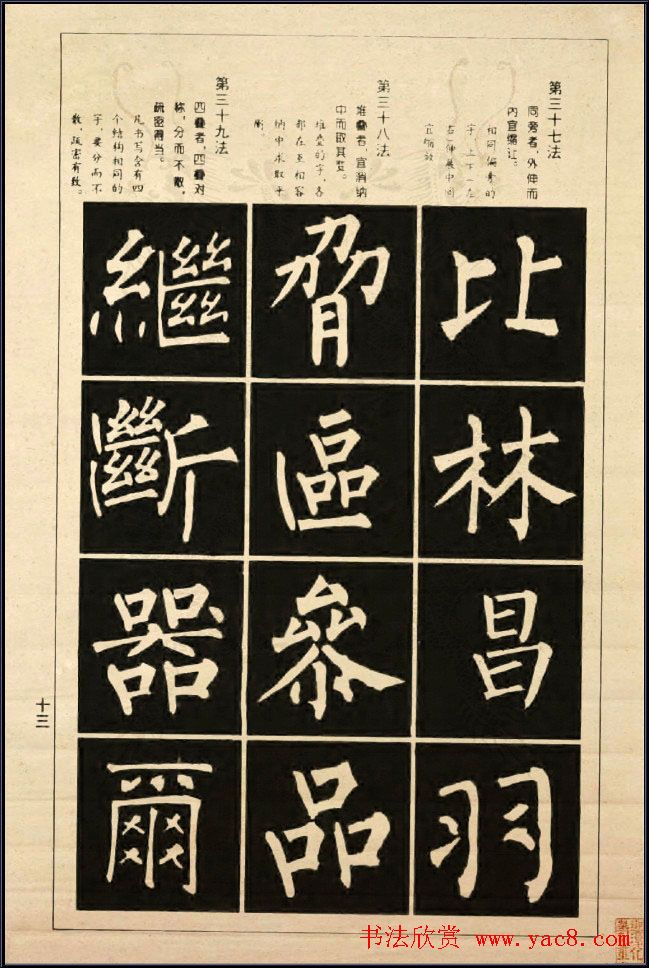 第三十七法
同旁者，外伸而
内宜缩让。
相同偏旁的
字，上下、左
右伸展中间
宜缩敛
比林昌羽
第三十八法
堆叠者，宜消纳
中而取其整。
堆叠的字，各
部在互相容
纳中求取平
衡。
脅區參品
第三十九法
四叠者，四叠对
称，分而不散，
疏密得当。
凡书写含有四
个结构相同的
字，要分而不
散，疏密有致。
繼斷器爾
十三
书法欣赏 www.yac8.com